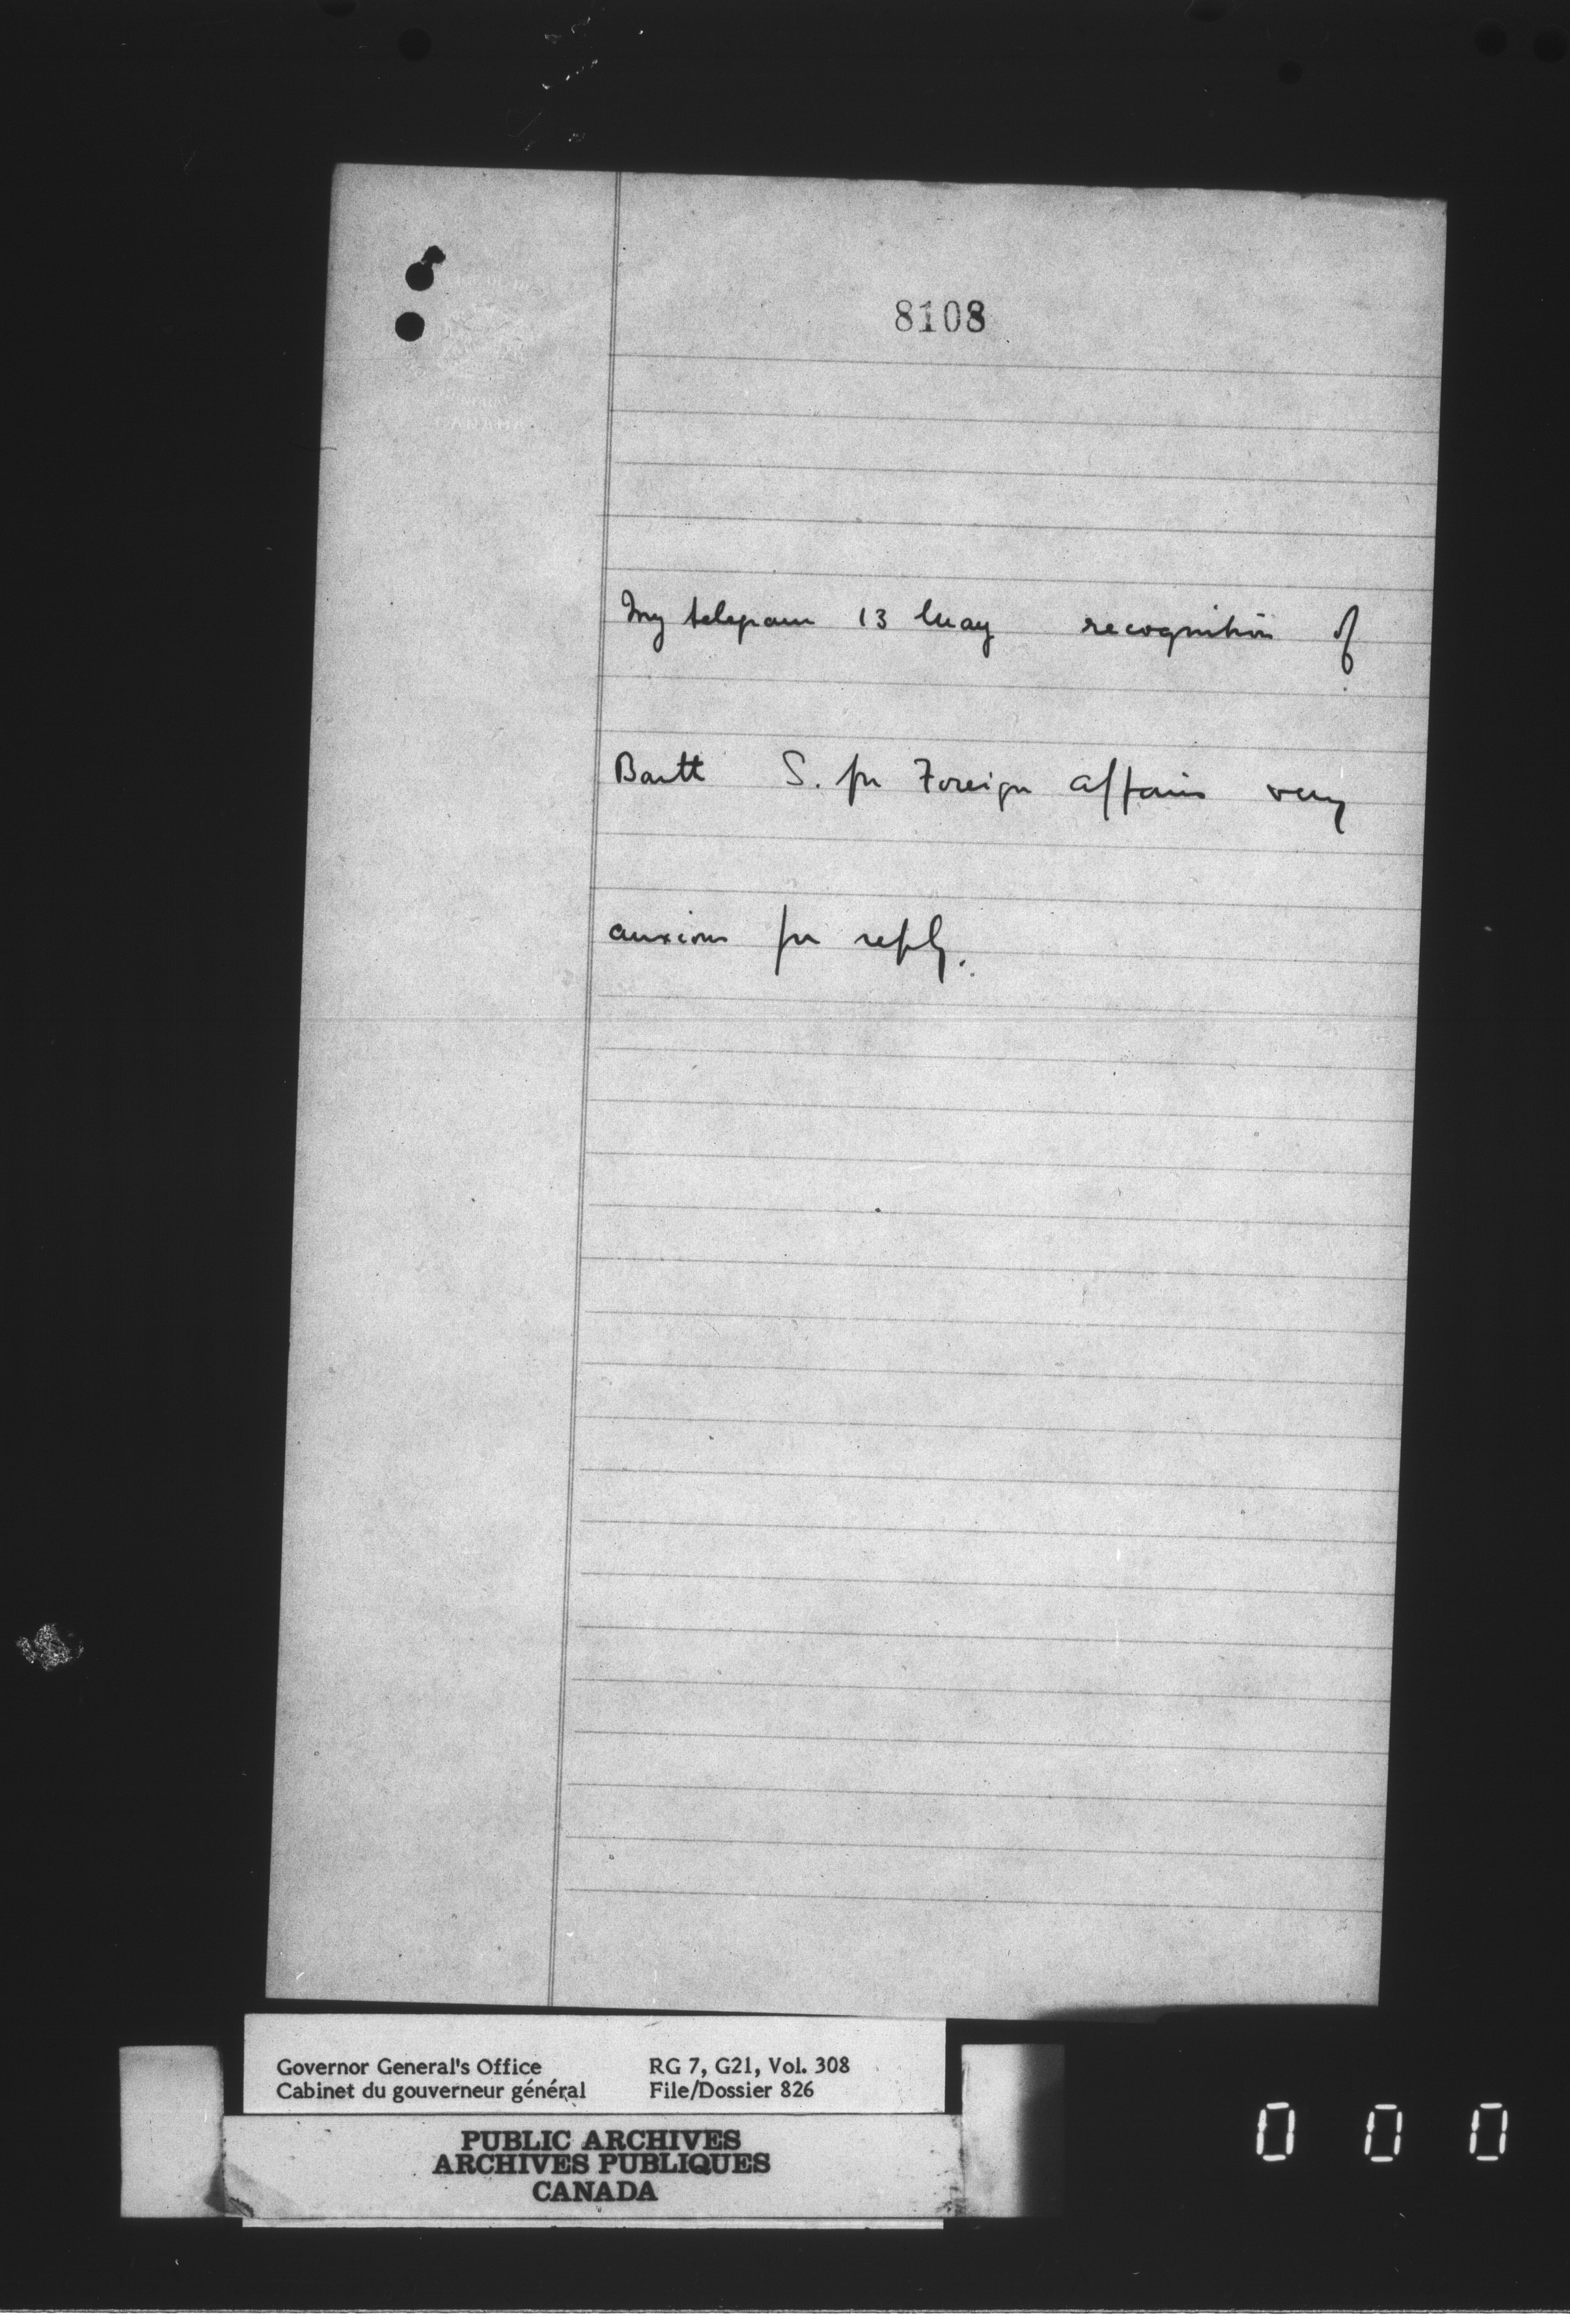 8108
My telegram 13 May recognition of
Bartt S. for Foreign affairs very
anxious for reply.
CANADA
Governor General's Office RG 7, G21, Vol. 308
Cabinet du gouverneur général File/Dossier 826
PUBLIC ARCHIVES
ARCHIVES PUBLIQUES
CANADA
0 0 0